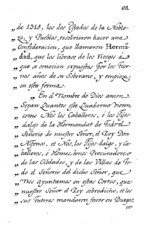 de 1315, los dos Estados de la Noble-
za, y Pueblos, resolvieron hacer una
Confederacion, que llamaron Herman-
dad, que les librase de los riesgos á
que se creian expuestos por los tier-
nos años de su Soberano, y empieza
en esta forma.
En el Nombre de Dios amen.
Sepan quantos este Quaderno vieren
como Nos los Caballeros, é los Fijos-
dalgo de la Hermandat de todo el
Señorio de nuestro Señor, el Rey Don
Alfonso, et Nos, los Fijos-dalgo, y Ca-
balleros, é Homes-bonos Procuradores
de las Cibdades, y de las Villas de To-
do el Señorio del dicho Señor, que
Nos ayuntamos en estas Cortes, que
nuestro Señor el Rey sobredicho, et los
sus Tutores mandaron facer en Burgos